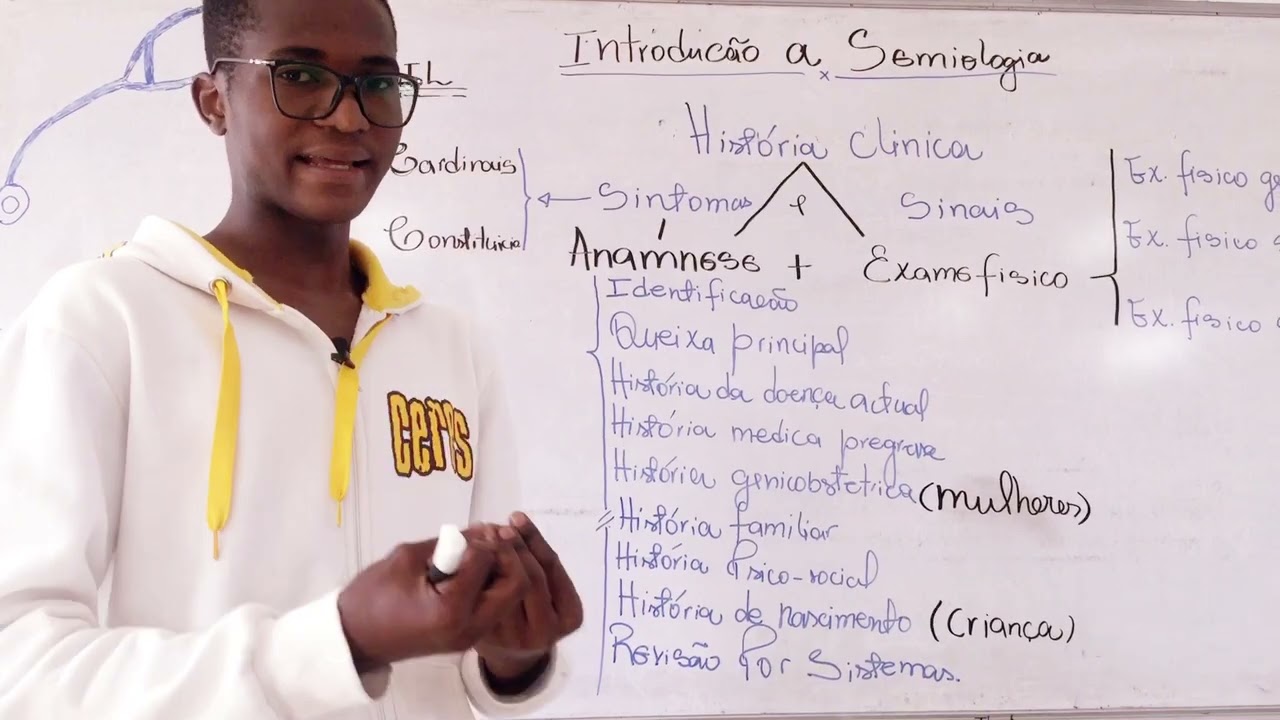 Introducão a Semiologia
História Clinica
Cardinais
Constituicia
Sintomas
+
Sinais
Anamnese + Exame fisico
Ex. fisico
Ex. fisico
Ex. fisico
Identificacão
Queixa principal
História da doença actual
História medica pregrava
História genicobstetrica (mulheres)
História familiar
História Psico-social
História de nascimento (Criança)
Revisão Por Sistemas.